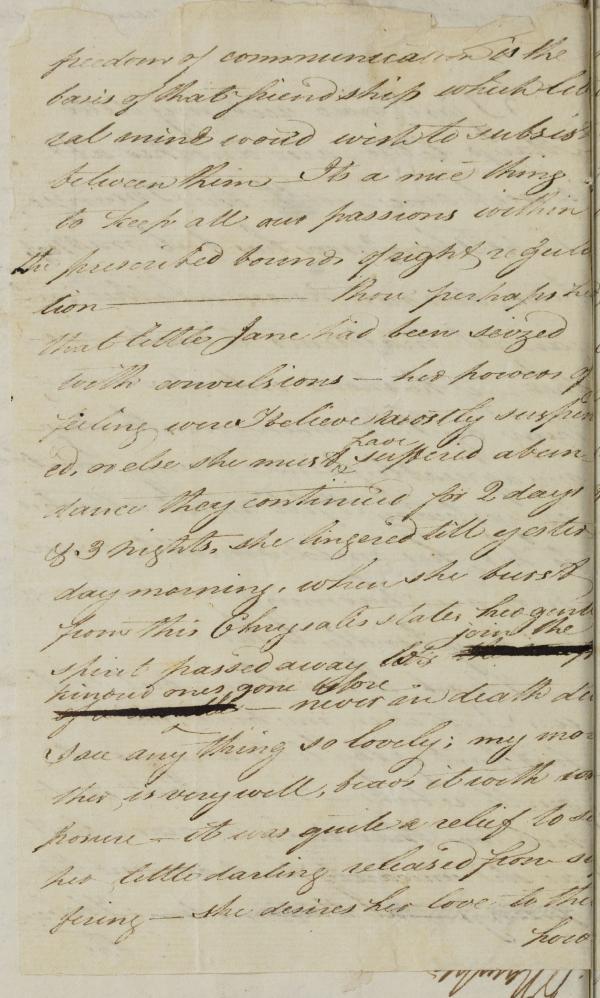 freedom of communication is the
basis of that friendship which lib
ral mind would wish to subsist
between them – It's a nice thing
to keep all our passions within
the prescribed bounds of right regula
tion ———— Thou perhaps
that little Jane had been seized
with convulsions – her powers of
feeling were I believe mostly suspen
ed, or else she must have suffered abun
dance they continued for 2 days
& 3 nights, she lingered till yester
day morning, when she burst
from this Chrysalis state, her gentle
spirit passed away to join the
kindred ones gone before
– never in death did
I see any thing so lovely; my mo
ther is very well, bears it with com
posure – it was quite a relief to se
her little darling released from su
fering – she desires her love to the
how